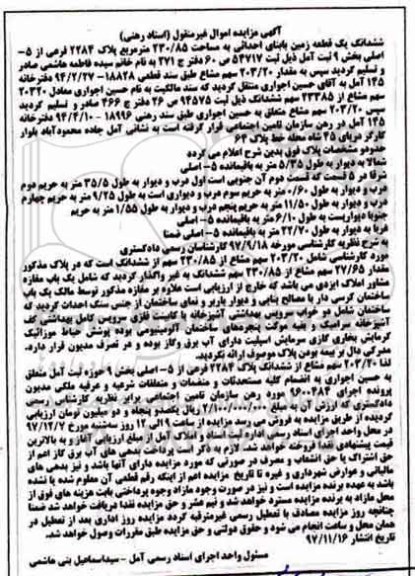 آگهی مزایده اموال غیرمنقول (اسناد رهنی)
ششدانگ یک قطعه زمین بابنای احداثی به مساحت ۲۳۰/۸۵ مترمربع پلاک ۲۲۸۴ فرعی از ۵-
اصلی بخش ۹ ثبت آمل ذیل ثبت ۵۴۷۱۷ ص ۶۰ دفتر ج ۲۷۱ به نام خانم سیده فاطمه هاشمی صادر
و تسلیم گردید سپس به مقدار ۲۰۳/۲۰ سهم مشاع طبق سند قطعی ۱۸۸۲۸- ۹۴/۲/۲۷ دفترخانه
۱۴۵ آمل به آقای حسین اجواری منتقل گردید که سند مالکیت به نام حسین اجواری معادل ۲۰۳۲۰
سهم مشاع از ۲۳۳۸۵ سهم ششدانگ ذیل ثبت ۹۴۵۷۵ ص ۲۶ دفتر ج ۴۶۶ صادر و تسلیم گردید
سپس ۲۰۳/۲۰ سهم مشاع متعلق به حسین اجواری طبق سند رهنی ۱۸۹۹۶ - ۹۴/۴/۱۰ دفترخانه
۱۴۵ آمل در رهن سازمان تامین اجتماعی قرار گرفته است به نشانی آمل جاده محمودآباد بلوار
کارگر دریای ۳۵ شاه محله خط پلاک ۶۴
حدود مشخصات پلاک فوق بدین شرح اعلام می گردد
شمالا به دیوار به طول ۵/۳۵ متر به باقیمانده ۵- اصلی
شرقا در ۵ قسمت که قسمت دوم آن جنوبی است اول درب و دیوار به طول ۳۵/۵ متر به حریم دوم
درب و دیوار به طول ۰/۶۰ متر به حریم سوم درب و دیواری است به طول ۹/۲۵ متر به حریم چهارم
درب و دیوار به طول ۱۱/۵۰ متر به حریم پنجم درب و دیوار به طول ۱/۵۵ متر به حریم
جنوبا دیواریست به طول ۶/۱۰ متر به باقیمانده ۵- اصلی
غربا به دیوار به طول ۲۲/۷۰ متر به باقیمانده ۵- اصلی ضمنا
به شرح نظریه کارشناسی مورخه ۹۷/۹/۱۸ کارشناسان رسمی دادگستری
مورد کارشناسی شامل ۲۰۳/۲۰ سهم مشاع از ۲۳۰/۸۵ سهم از ششدانگ است که در پلاک مذکور
مقدار ۲۷/۶۵ سهم مشاع از ۲۳۰/۸۵ سهم ششدانگ به غیر واگذار گردید که شامل یک باب مغازه
مشاور املاک ایزدی می باشد که خارج از ارزیابی است علاوه بر مغازه مذکور توسط مالک یک باب
ساختمان کرسی دار با مصالح بنایی و دیوار باربر و نمای ساختمان از جنس سنگ احداث گردید که
ساختمان شامل دو خواب سرویس بهداشتی آشپزخانه با کابینت فلزی سرویس کامل بهداشتی کف
آشپزخانه سرامیک و بقیه موکت پنجره‌های ساختمان آلومینیومی بوده پوشش حیاط موزائیک
گرمایش بخاری گازی سرمایش اسپلیت دارای آب برق وگاز بوده و در تصرف مدیون قرار دارد.
مدرکی دال بر بیمه بودن پلاک موصوف ارائه نگردید.
لذا ۲۰۳/۲۰ سهم مشاع از ششدانگ پلاک ۲۲۸۴ فرعی از ۵- اصلی بخش ۹ حوزه ثبت آمل متعلق
به حسین اجواری به انضمام کلیه مستحدثات و منضمات و متعلقات شرعیه و عرفیه ملکی مدیون
پرونده اجرایی مورد رهن سازمان تامین اجتماعی برابر نظریه کارشناس رسمی
دادگستری که ارزش آن به مبلغ ۲/۱۰۰/۰۰۰/۰۰۰ ریال یکصدم پنجاه و دو میلیون تومان ارزیابی
گردیده از طریق مزایده به فروش می رسد مزایده از ساعت ۹ الی ۱۲ روز سه‌شنبه مورخ ۹۷/۱۲/۷
در محل واحد اجرای اسناد رسمی اداره ثبت اسناد و املاک آمل از مبلغ ارزیابی آغاز و به بالاترین
قیمت پیشنهادی نقدا فروخته خواهد شد. لازم به ذکر است پرداخت بدهی های آب برق گاز اعم از
حق اشتراک یا حق انشعاب و مصرف در صورتی که مورد مزایده دارای آنها باشد و نیز بدهی های
مالیاتی و عوارض شهرداری و غیره تا تاریخ مزایده اعم از اینکه رقم قطعی آن معلوم شده یا نشده
باشد به عهده برنده مزایده است و نیز در صورت وجود مازاد وجوه پرداختی بابت هزینه های فوق از
محل مازاد به برنده مزایده مسترد خواهد شد و نیم عشر و حق مزایده نقدا دریافت خواهد شد ضمنا
چنانچه روز مزایده مصادف با تعطیل رسمی غیرمترقبه گردد مزایده روز اداری بعد از تعطیل در
همان محل و ساعت انجام می شود و حقوق دولتی و حق مزایده طبق مقررات وصول خواهد شد.
تاریخ انتشار ۹۷/۱۱/۱۶
مسئول واحد اجرای اسناد رسمی آمل - سیداسماعیل بنی هاشمی